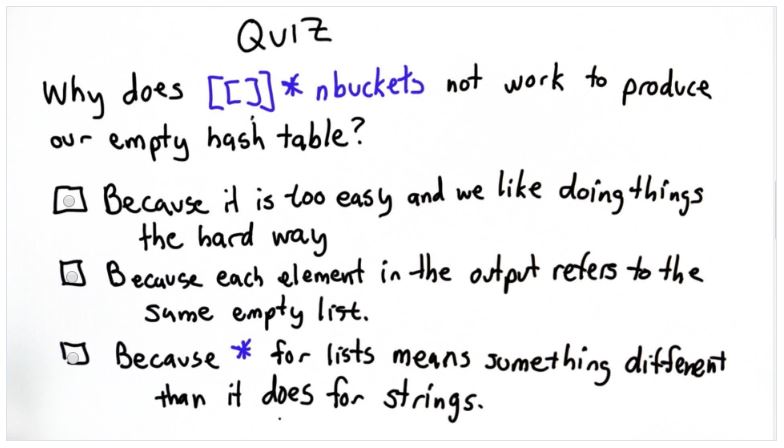 QUIZ
Why does [[]] * nbuckets not work to produce
our empty hash table?
Because it is too easy and we like doing things
the hard way
Because each element in the output refers to the
same empty list.
Because * for lists means something different
than it does for strings.